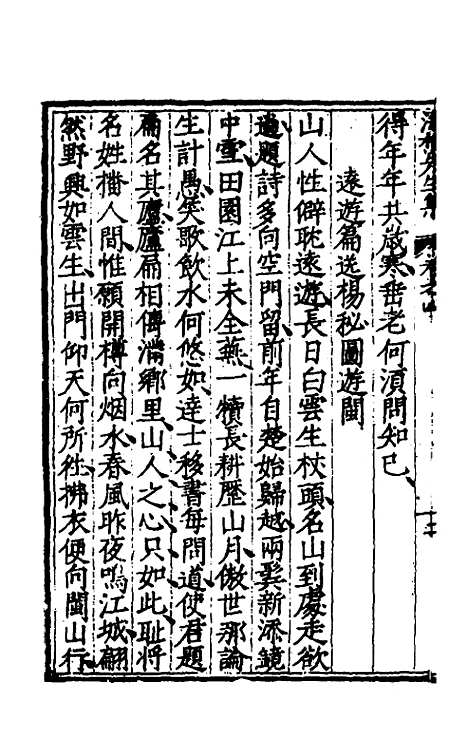 得年年共歲寒垂老何須問知已
遠遊篇送楊秘圖遊閩
山人性僻耽遠遊長日白雲生杖頭名山到處走欲
遍題詩多向空門留前年自楚始歸越兩鬢新添鏡
中雪田園江上未全蕪一犢長耕歷山月傲世那論
生計愚笑歌飲水何悠如達士移書每問道使君題
扁名其廬廬扁相傳滿鄉里山人之心只如此恥將
名姓播人間惟願開樽向烟水春風昨夜鳴江城翩
然野興如雲生出門仰天何所徃拂衣便向閩山行